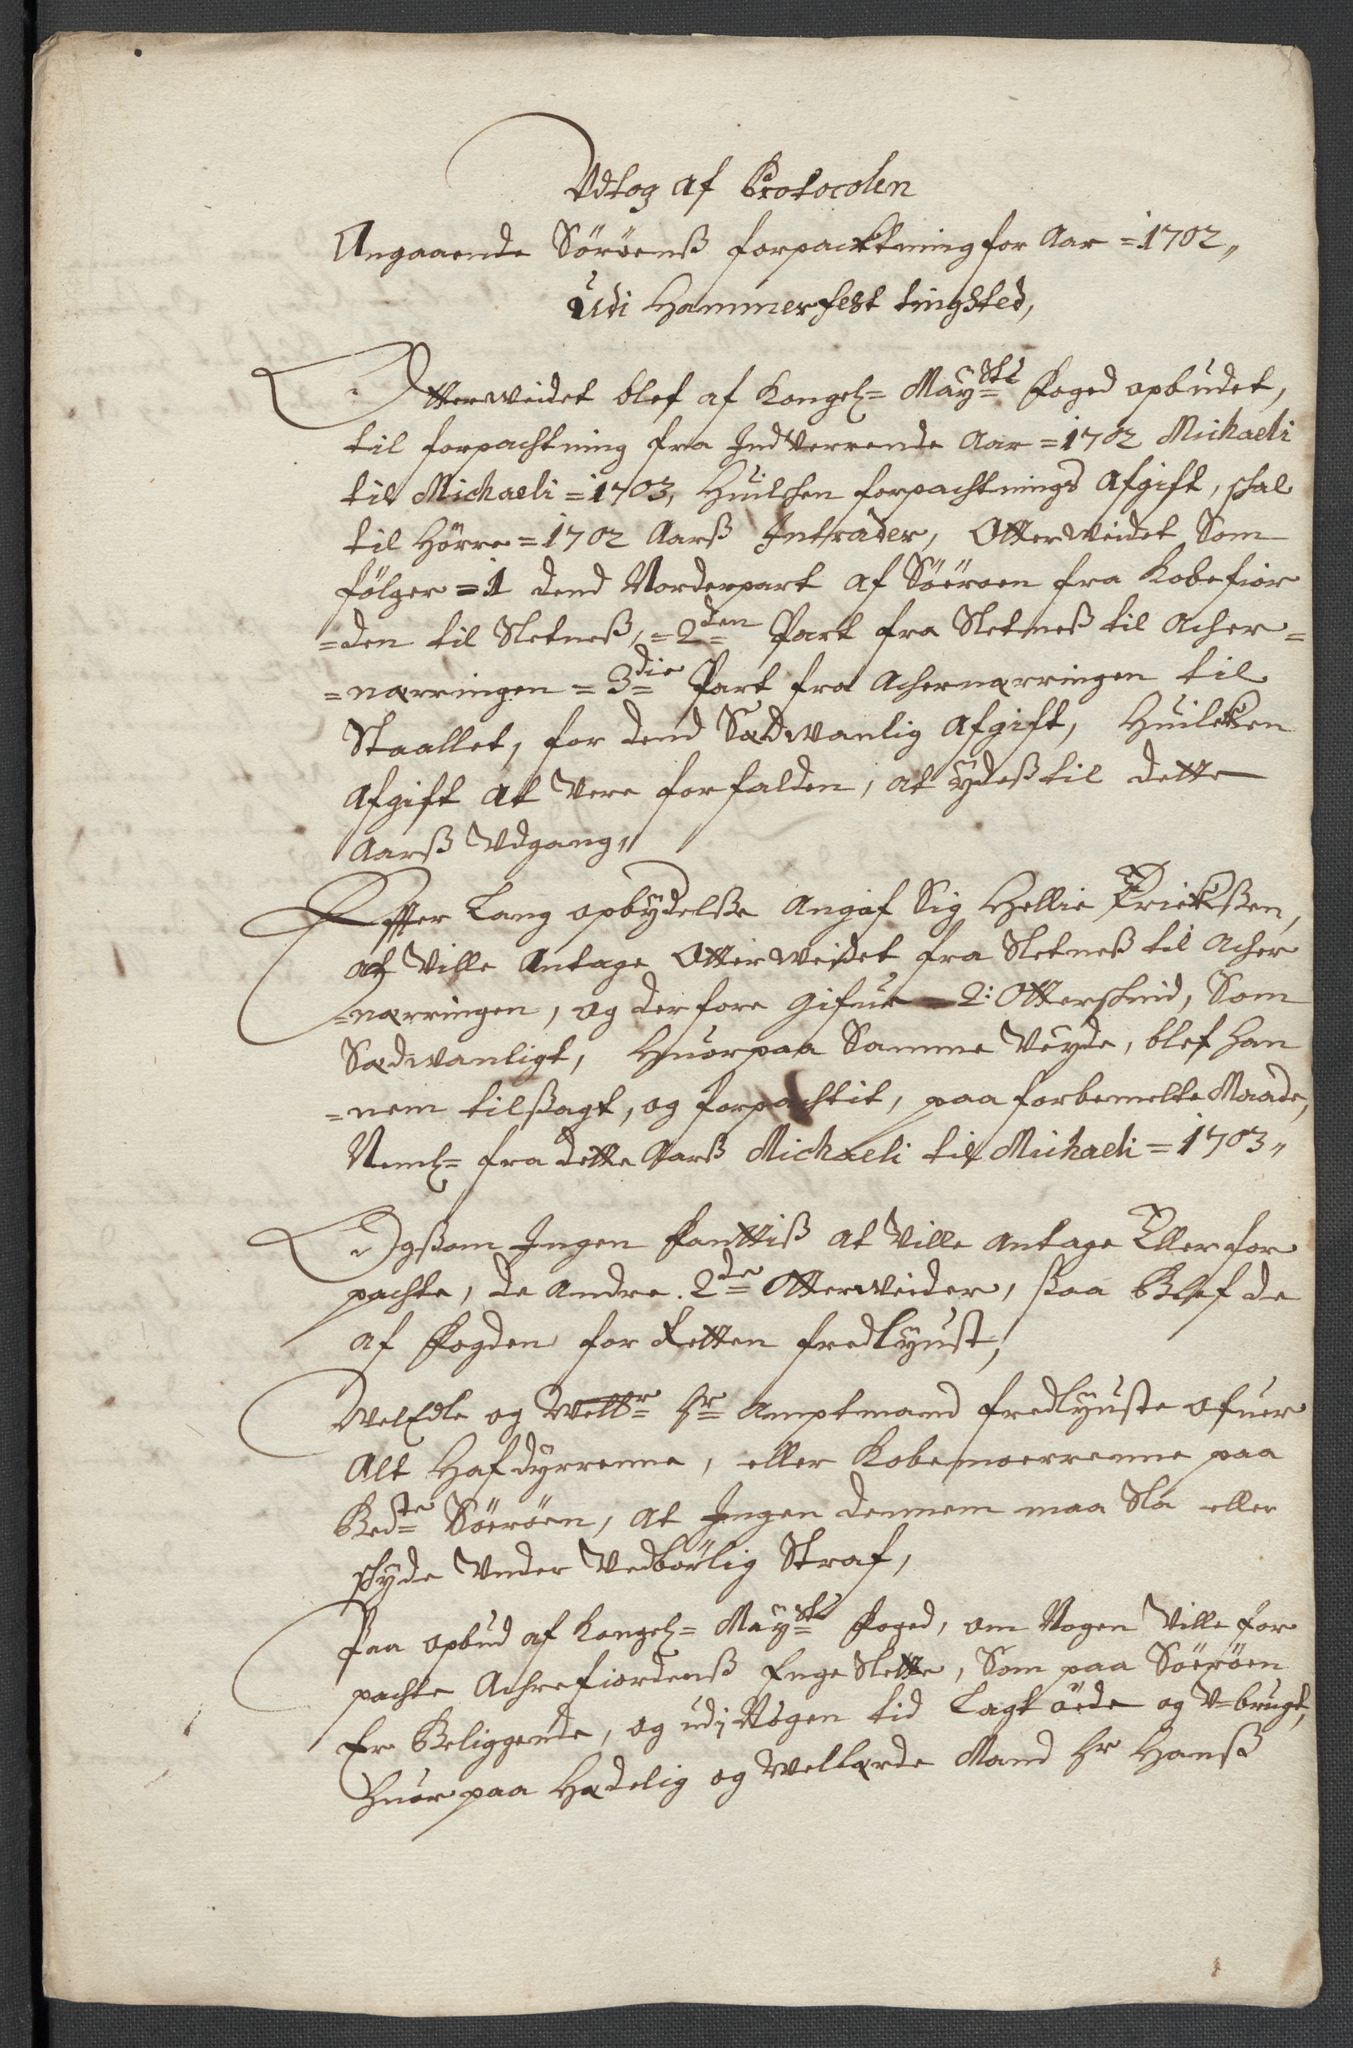 Udtog af Protocolen
Angaaende Sörøenß forpacktning for Aar = 1702,,
Udi Hammerfest tingsted,
Otterweidet blef af Kongel= Mayst:s Foged opbudet,
til forpachtning fra Indverrende Aar = 1702 Michaeli
til Michaeli = 1703, Huilchen forpachtnings Afgift, schal
til Hörre = 1702 Aarß Intrader, Otterweidet Som
fölger = 1 dend Norderpart af Söeröen fra Kobefior
=den til Sletneß, = 2den Part fra Sletneß til Acher=
=narringen = 3die Part fra Achernarringen til
Staallet, for dend Sædwanlig Afgift, Huilcken
Afgift at Vere forfalden, at ydeß til dette
Aarß Udgang,,
Effter Lang opbydelße Angaf Sig Hellie Erickßen,
at Ville Antage Otterweidet fra Sletneß til Acher
=narringen, og derfore Gifue = 2: Otterschind, Som
Sædwanligt, Huorpaa Samme Veyde, blef han
=nem tilßagt, og forpachtit, paa forbemelte Maade,
Neml= fra dette Aarß Michaeli til Michaeli = 1703,,
Ogßom Ingen Fantiß at Ville Antage Eller for
pachte, de Andre 2de Otterweider, ßaa Blef de
af Fogden for Retten fredlyust,
WelEdle og Welbr hr Amptmand fredlyuste ofuer
Alt Hafdyrrenne, eller Kobenoerrenne paa
Bedte Söeröen, at Ingen dennem maa Sla eller
schyde Under Vedbörlig Straf,
Paa opbud af Kongel= Mayst:s Foged, om Nogen Ville for
pachte Achrefiordenß Enge Slette, Som paa Söeröen
Er Beliggende, og udj Nogen tid Lagt öede og U=brugt,
Huorpaa Hæderlig og Wellærde Mand hr Hanß